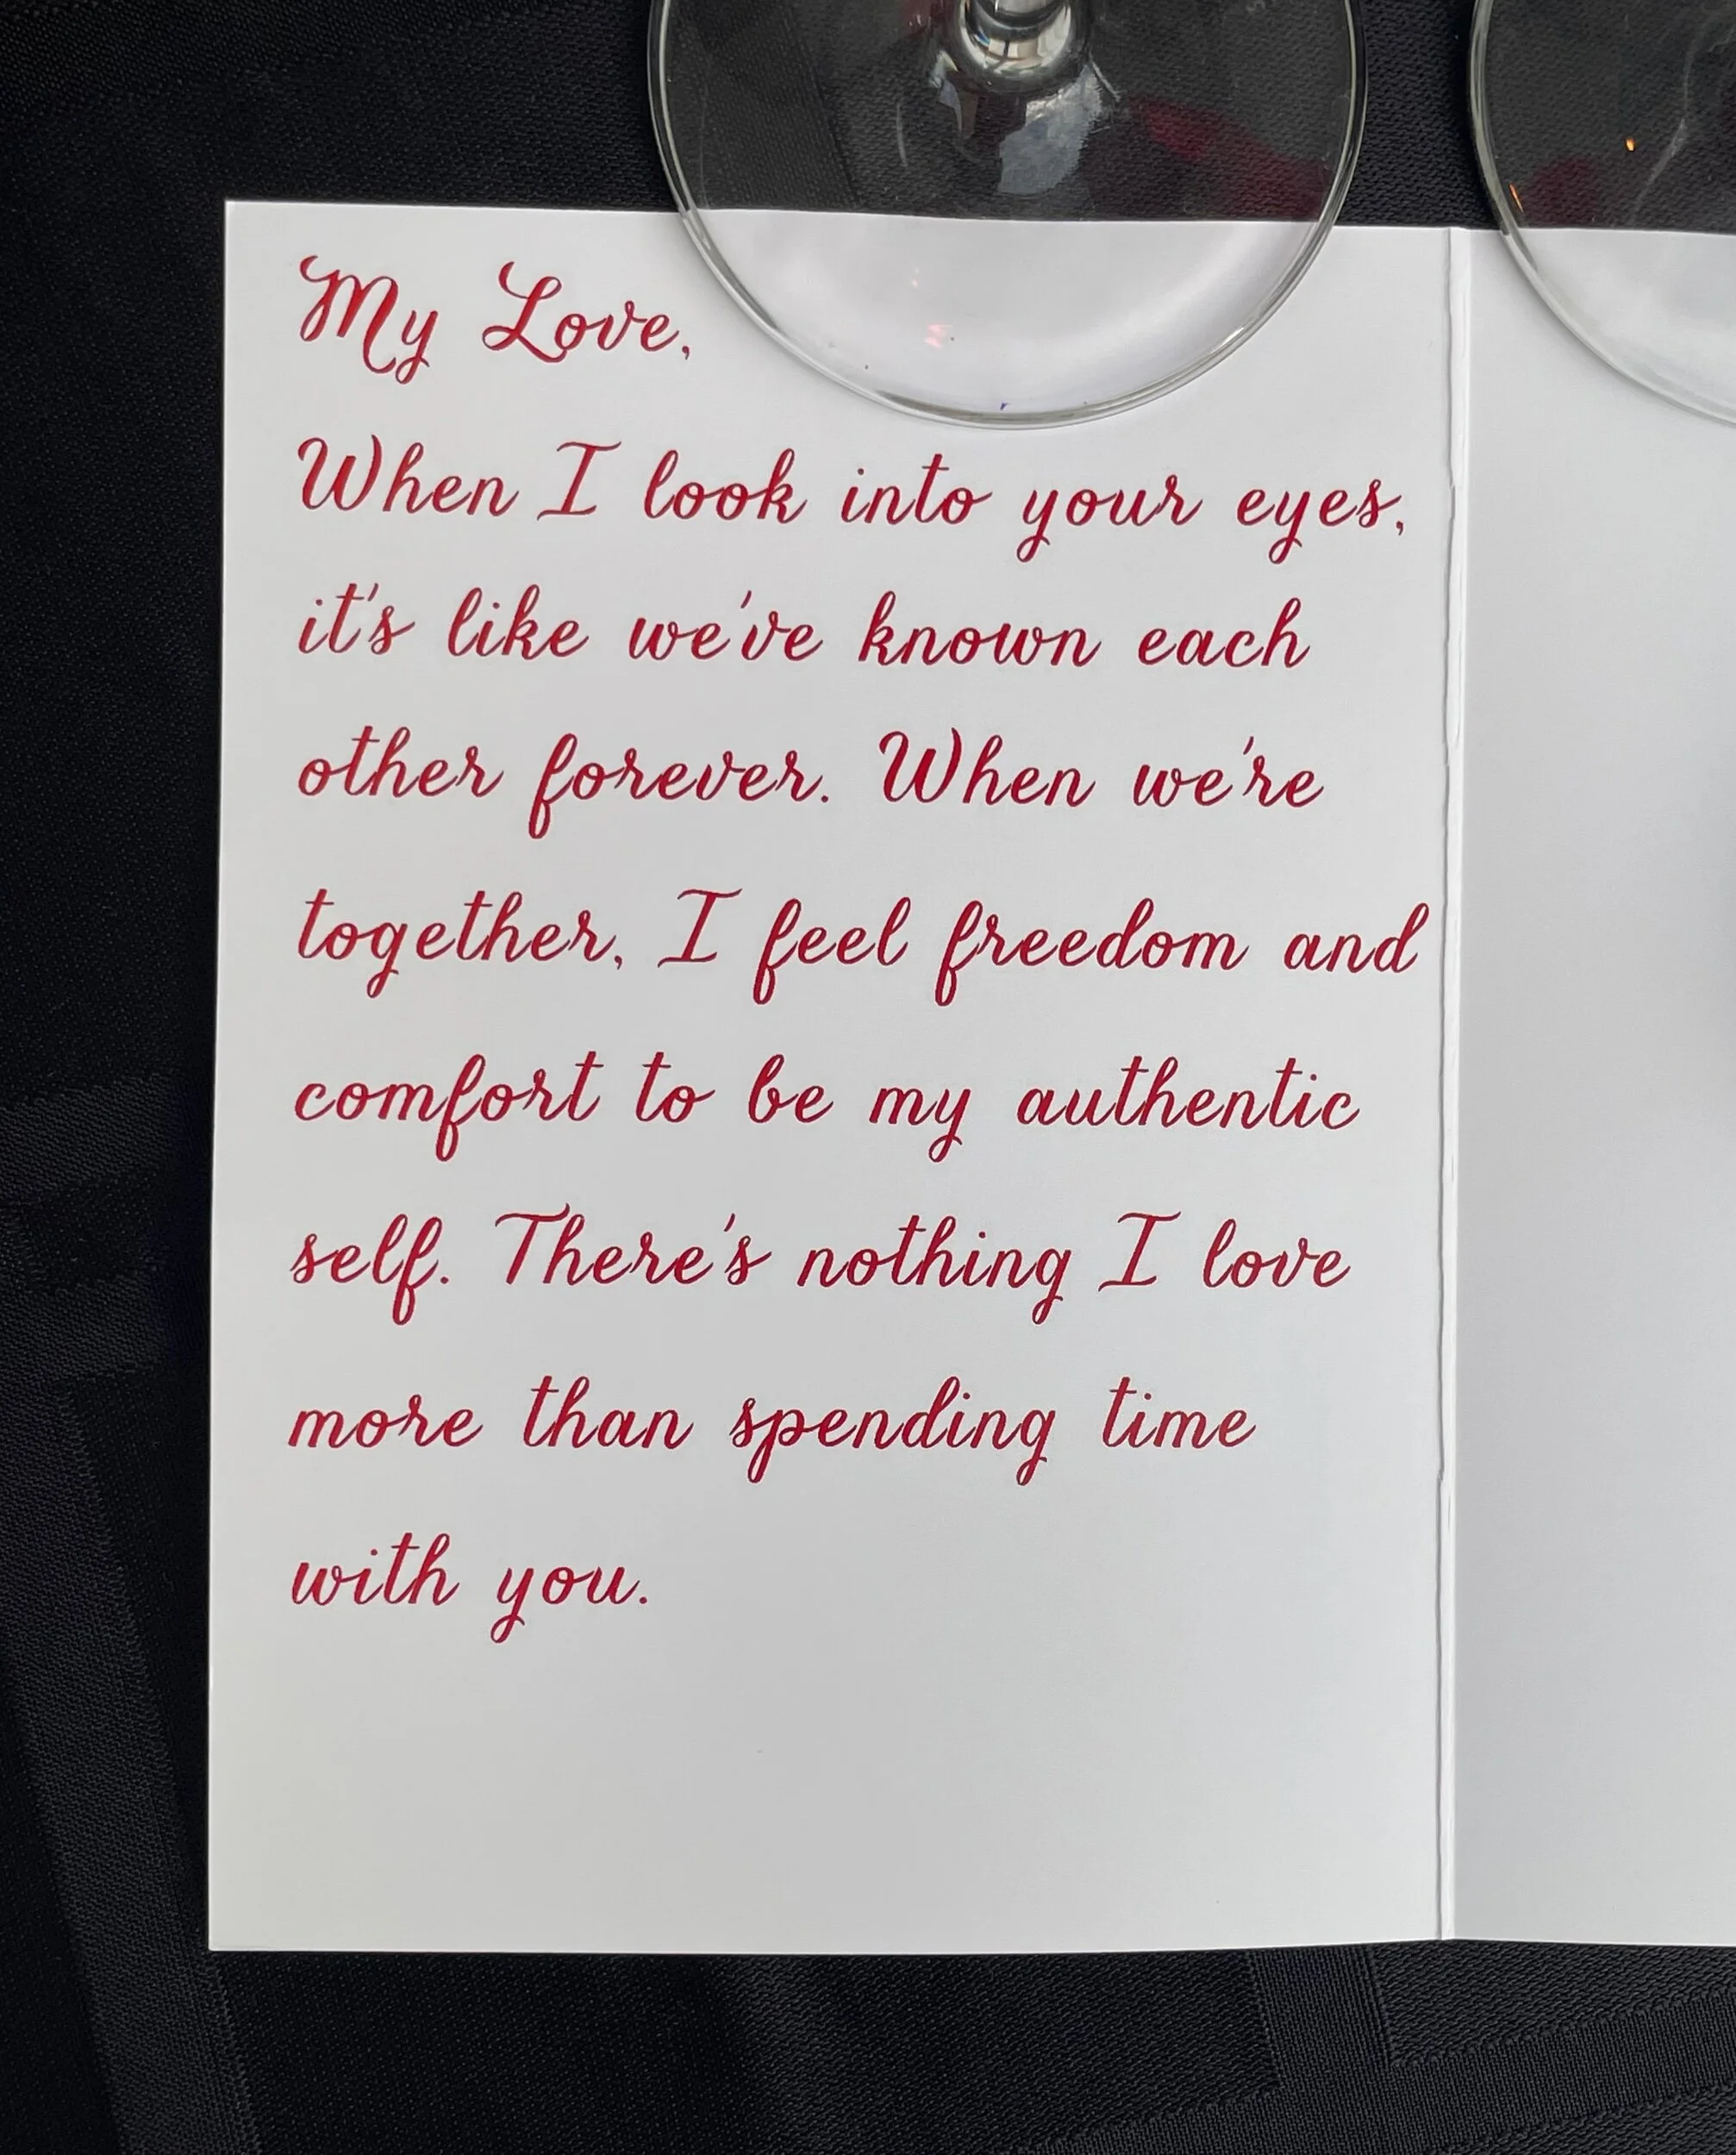 My Love,
When I look into your eyes,
it's like we've known each
other forever. When we're
together, I feel freedom and
comfort to be my authentic
self. There's nothing I love
more than spending time
with you.